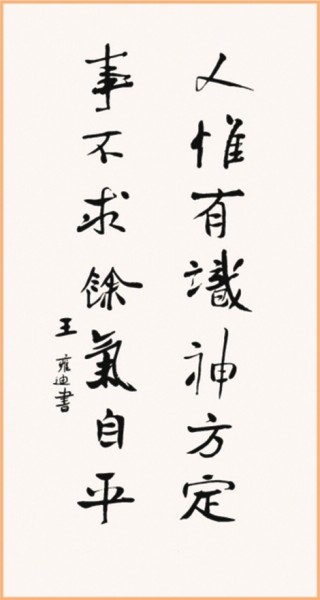 人惟有識神方定
事不求餘氣自平
王雍迪書